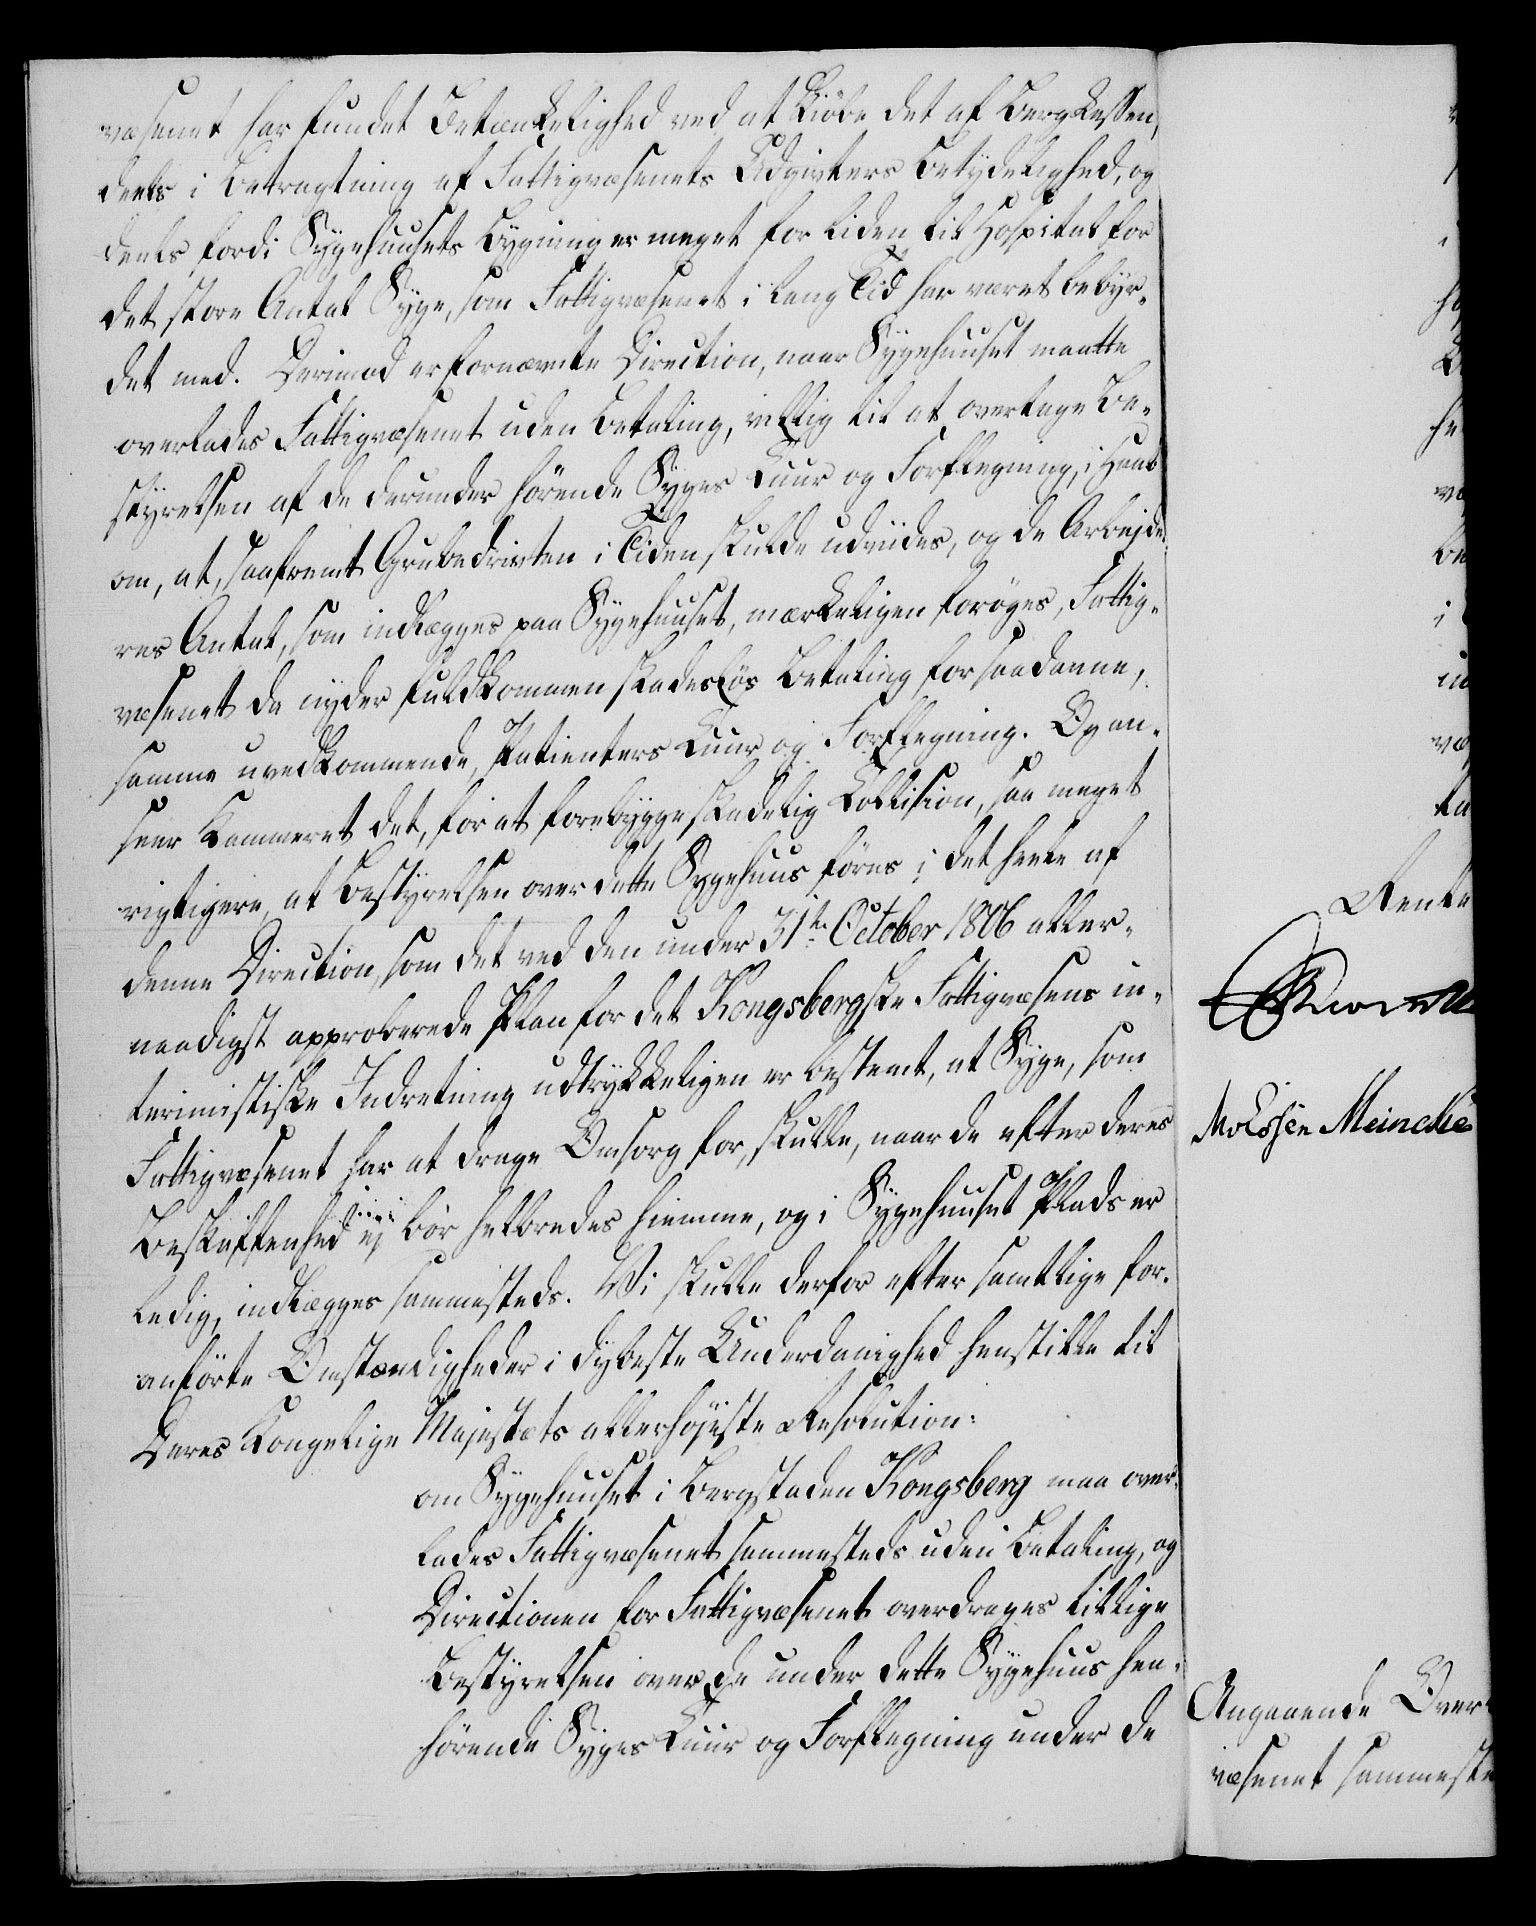 væsenet har fundet Betænkelighed ved at kiøbe det af BergCassen,
deels i Betragtning af Fattigvæsenets Udgivters Betydelighed, og
deels fordi Sygehuusets Bygning er meget for liden til Hospital for
det store Antal Syge, som Fattigvæsenet i lang Tid har været bebyr-
det med. Derimod er fornævnte Direction, naar Sygehuuset maatte
overlades Fattigvæsenet uden Betaling, villig til at overtage Be-
styrelsen af de derunder hørende Syges Cuur og Forflegning, i Haab
om, at, saafremt Grubedrivten i Tiden skulde udviides, og de Arbejde-
res Antal, som indlægges paa Sygehuuset, mærkeligen forøges, Fattig-
væsenet da nyder fuldkommen skadesløs Betaling for saadanne,
samme uvedkommende, Patienters Cuur og Forflegning. Og an-
seer Kammeret det, for at forebygge skadelig Collision, saa meget
rigtigere, at Bestyrelsen over dette Sygehuus føres i det heele af
denne Direction, som det ved den under 31te October 1806 aller-
naadigst approberede Plan for det Kongsbergske Fattigvæsens in-
terimistiske Indretning udtrykkeligen er bestemt, at Syge, som
Fattigvæsenet har at drage Omsorg for, skulle, naar de efter deres
Beskaffenhed ej bør helbredes hiemme, og i Sygehuuset Plads er
ledig, indlægges sammesteds. Vi skulle derfor efter samtlige for-
anførte Omstændigheder i dybeste Underdanighed henstille til
Deres Kongelige Majestæts allerhøjeste Resolution:
om Sygehuuset i Bergstaden Kongsberg maa over-
lades Fattigvæsenet sammesteds uden Betaling, og
Directionen for Fattigvæsenet overdrages tillige
Bestyrelsen over de under dette Sygehuus hen-
hørende Syges Cuur og Forflegning under de
Rente
Meincke
Angaaende Over
væsenet sammeste